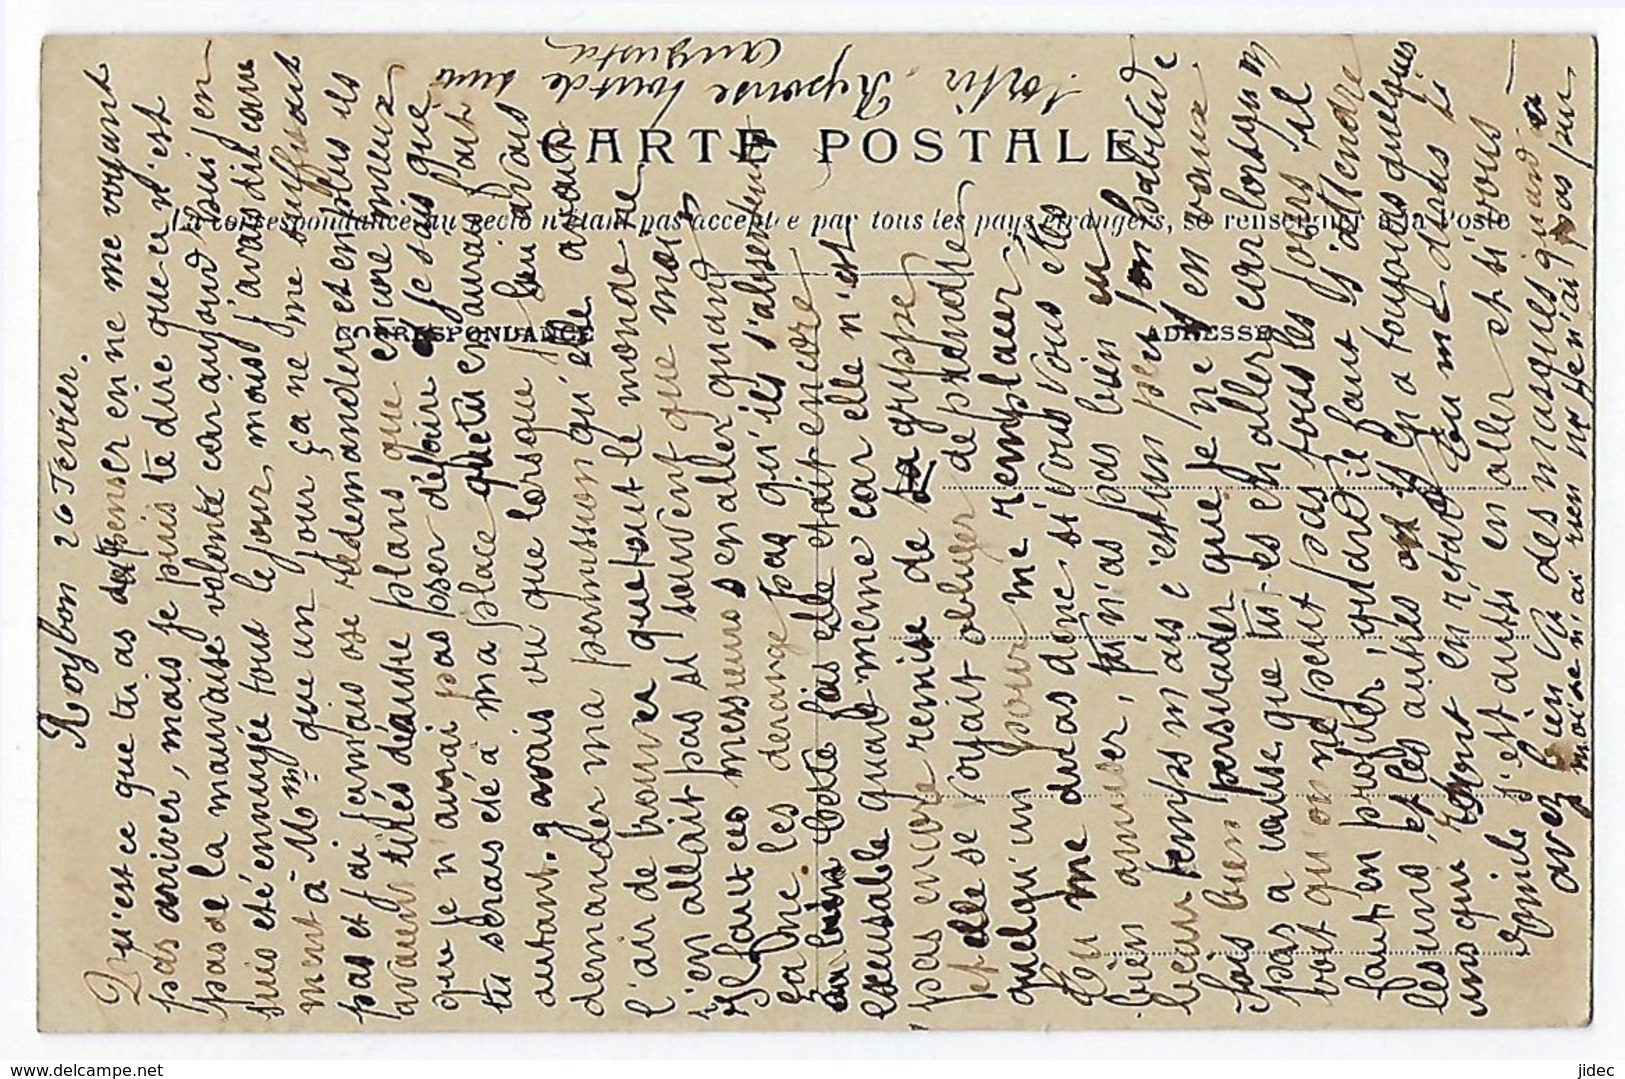 CARTE POSTALE
La correspondance au recto n'étant pas acceptée par tous les pays étrangers, se renseigner à la Poste
CORRESPONDANCE
ADRESSE
Roybon 26 Fevrier.
Qu'est ce que tu as du penser en ne me voyant
pas arriver, mais je puis te dire que ce n'est
pas de la mauvaise volonté car aujourd'hui j'en
suis eté ennuyée tout le jour mais j'avais dit carre
ment à Mme que un jour ça ne me suffisait
pas et j'ai jamais ose redemander et en plus ils
avaient tirés d'eautre plans que encore mieux
que je n'aurai pas oser défaire. Je sais que
tu serais eté à ma place que tu en aurais fait
autant. J'avais vu que lorsque je lui avais
demander ma permission qu'elle avait
l'air de trouver que tout le monde ne
s'en allait pas si souvent que moi
Il faut ces messieurs s'en aller quand
ça ne les derange pas qu'ils s'absentent
cette fois elle etait encore
excusable quand meme car elle n'est
pas encore remise de la grippe
et elle se voyait obliger de prendre
quelqu'un pour me remplacer.
Tu me diras donc si vous vous êtes
bien amuser, tu n'as pas bien eu
beau temps mais c'est un peu son habitude.
Sois bien persuader que je ne t'en veux
pas à cause que tu t'es en aller car lorsqu'on
voit qu'on ne peut pas tous les jours il
faut en profiter, quand il faut s'attendre
les uns et les autres il y en a toujours quelques
uns qui sont en retard Tu me diras si
Emile s'est aussi en aller et si vous
avez bien vu des masques quand a
moi je n'ai rien vu je n'ai pas pu
sortir. Reponse tout de suite
Augusta
jidec